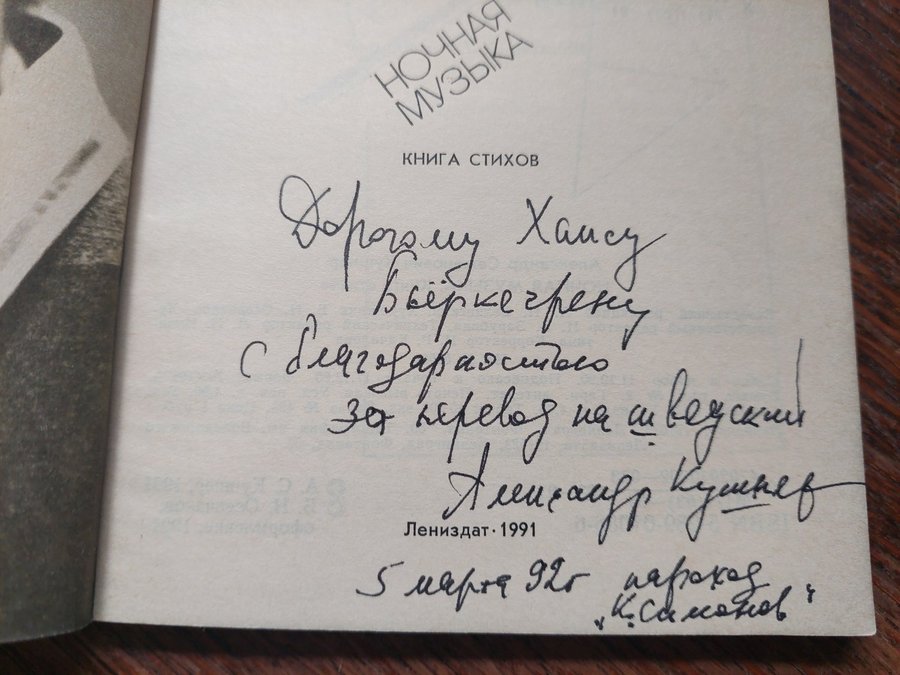 НОЧНАЯ
МУЗЫКА
КНИГА СТИХОВ
Дорогому Хансу
Бьёркегрену
с благодарностью
за перевод на шведский
Александр Кушнер
Лениздат · 1991
5 марта 92г пароход
„К. Симонов"